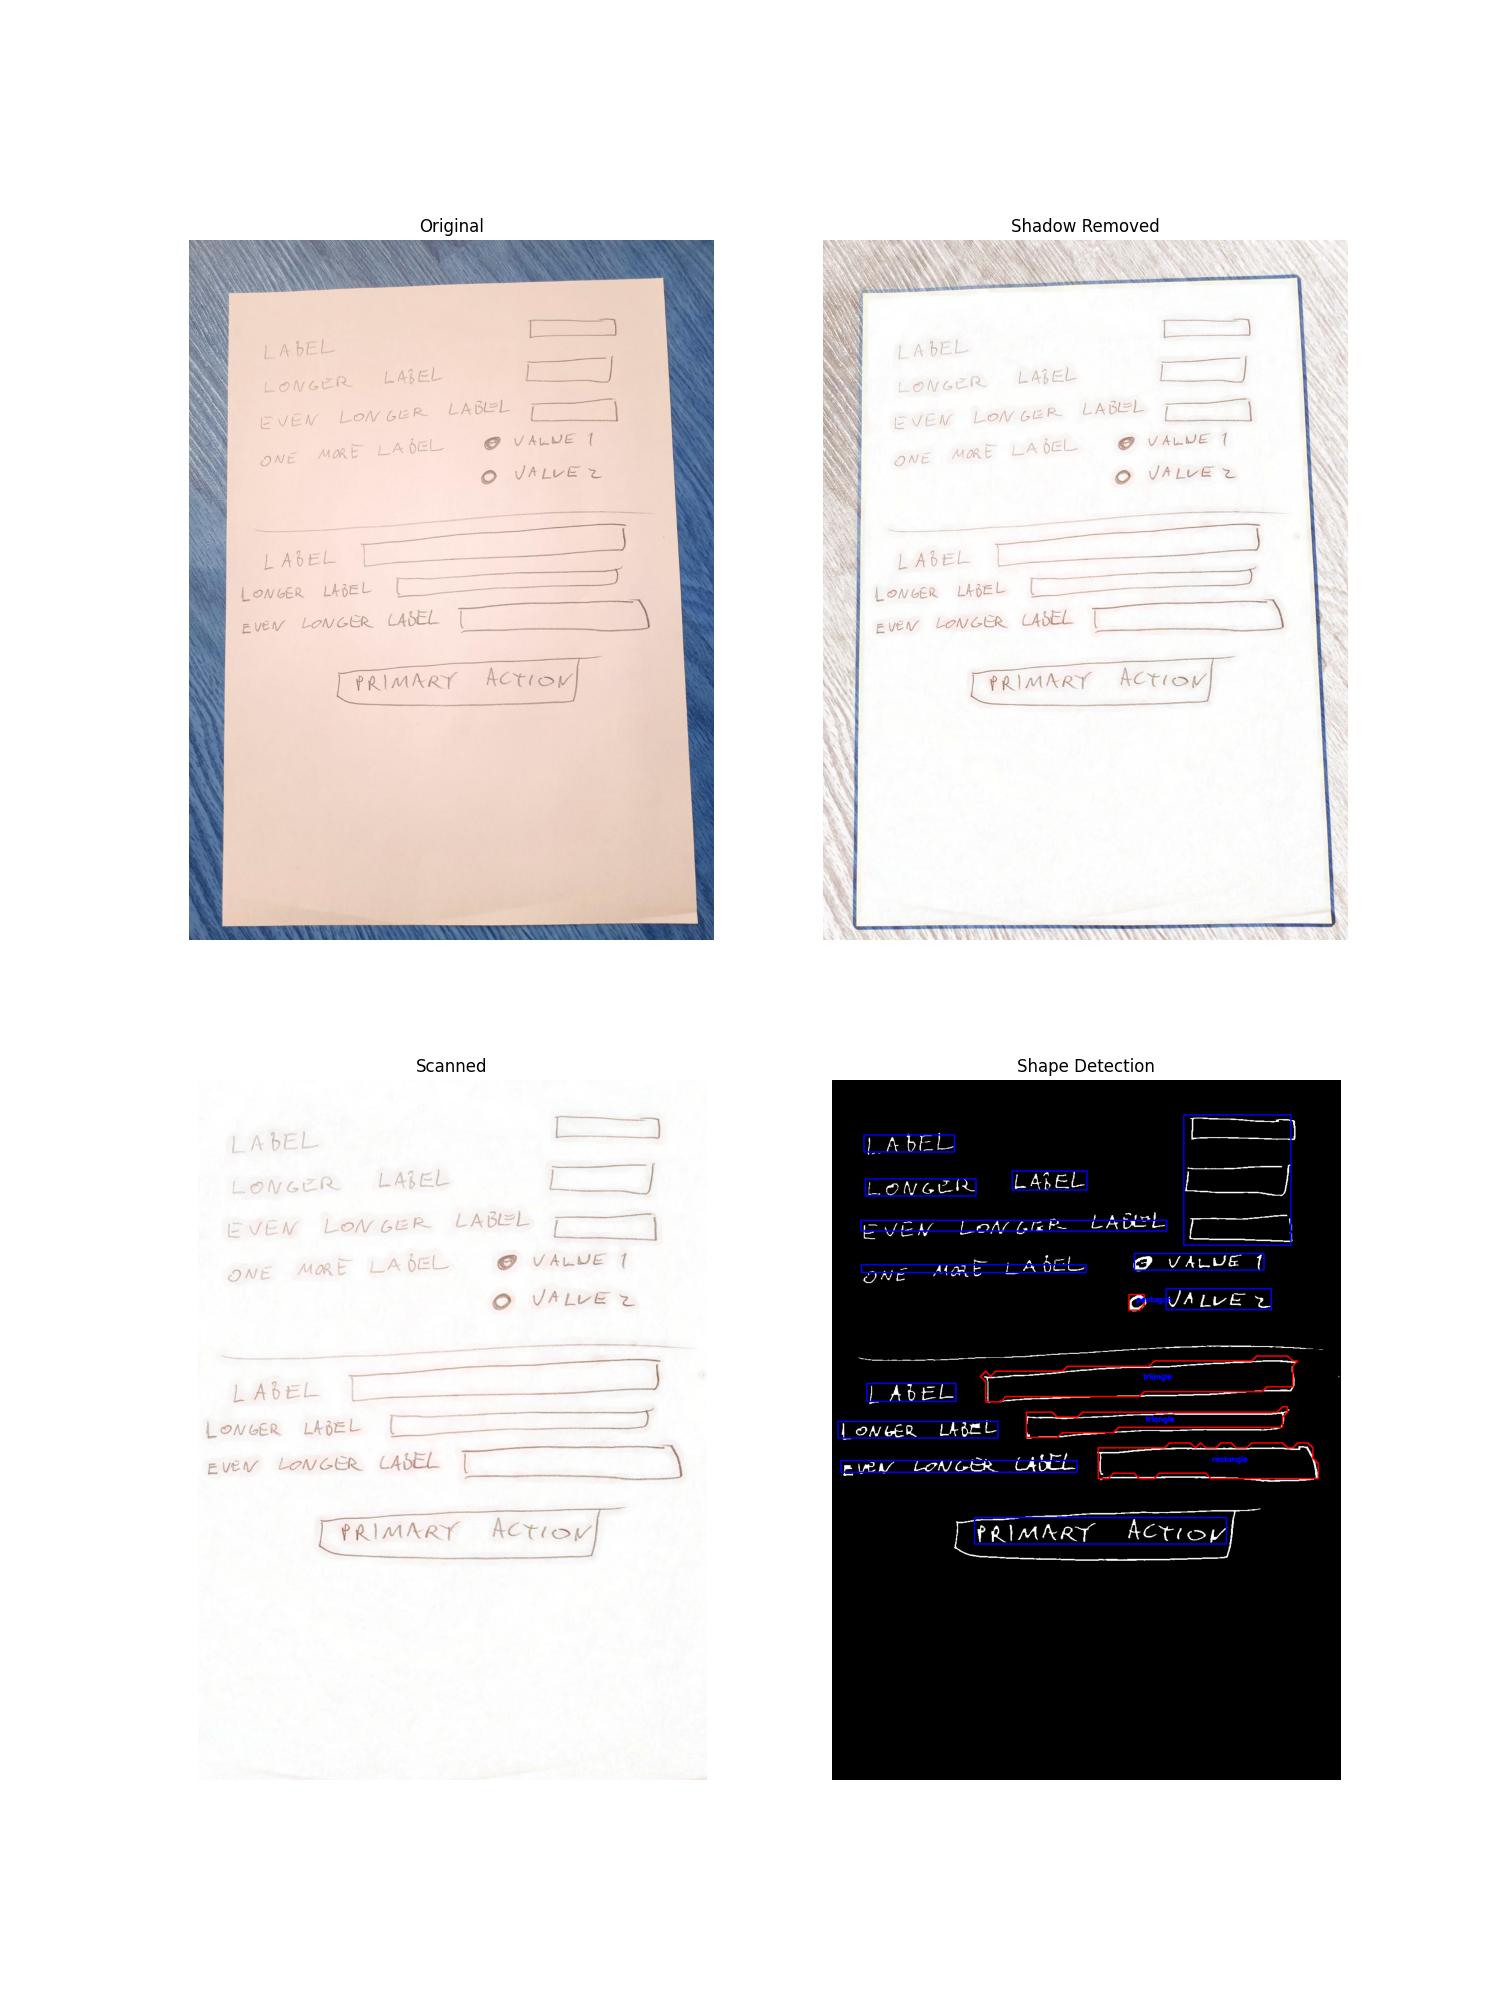 Original
LABEL
LONGER LABEL
EVEN LONGER LABEL
ONE MORE LABEL VALUE 1
VALUE 2
LABEL
LONGER LABEL
EVEN LONGER LABEL
PRIMARY ACTION
Shadow Removed
LABEL
LONGER LABEL
EVEN LONGER LABEL
ONE MORE LABEL VALUE 1
VALUE 2
LABEL
LONGER LABEL
EVEN LONGER LABEL
PRIMARY ACTION
Scanned
LABEL
LONGER LABEL
EVEN LONGER LABEL
ONE MORE LABEL VALUE 1
VALUE 2
LABEL
LONGER LABEL
EVEN LONGER LABEL
PRIMARY ACTION
Shape Detection
LABEL
LONGER LABEL
EVEN LONGER LABEL
ONE MORE LABEL VALUE 1
VALUE 2
triangle
LABEL
triangle
LONGER LABEL
rectangle
EVEN LONGER LABEL
PRIMARY ACTION